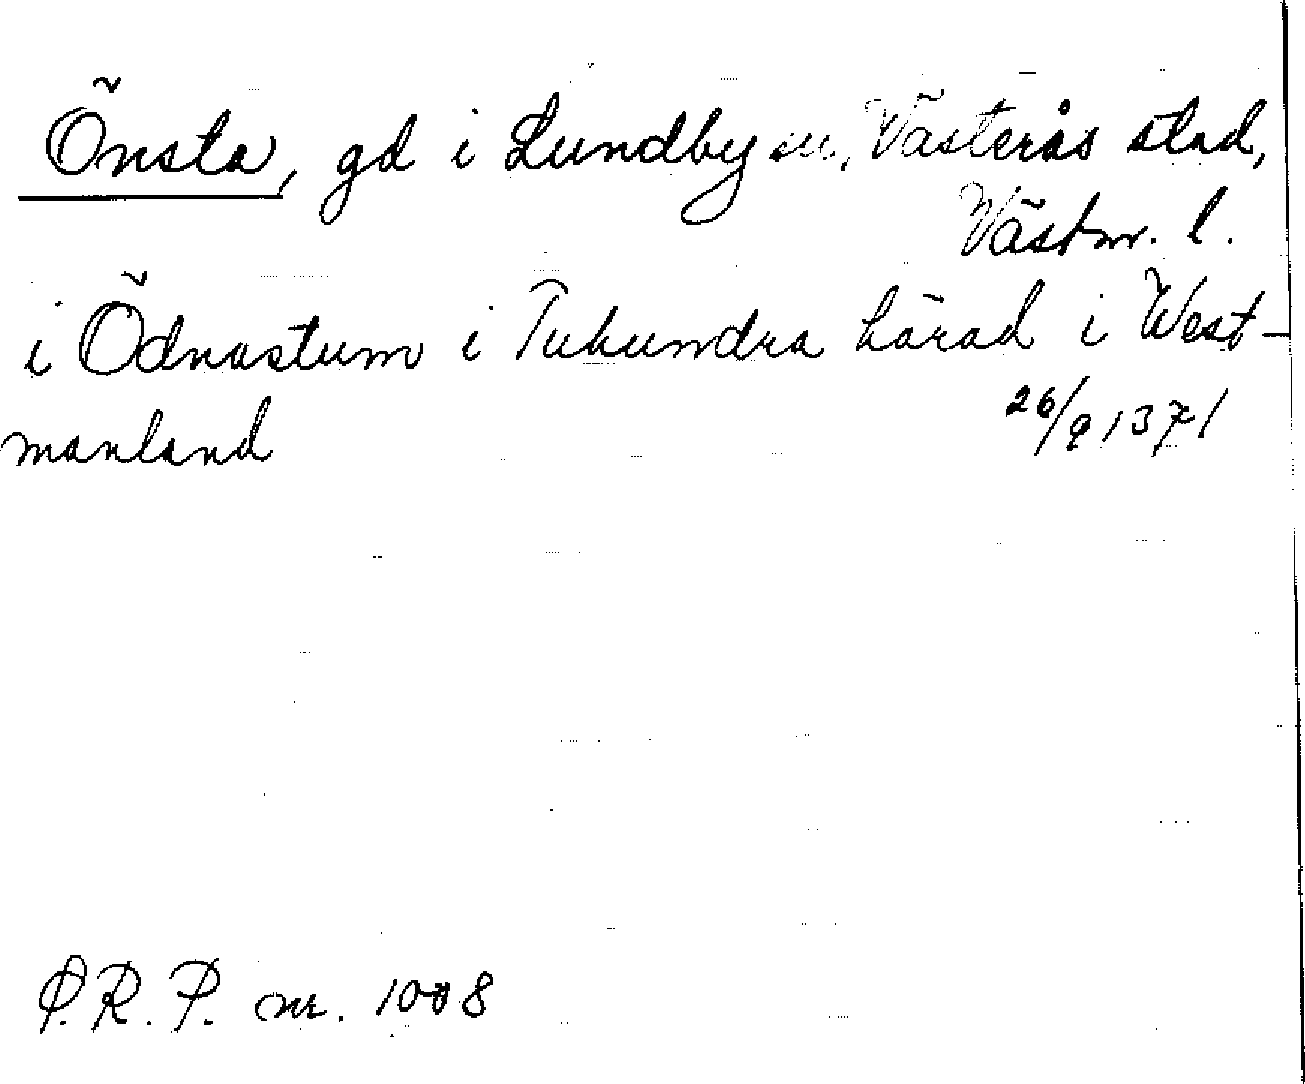 Önsta, gd i Lundby sn, Västerås stad,
Västm. l.
i Ödnastum i Tuhundra härad i West-
manland 26/9 1371
P.R.P. nr. 1008